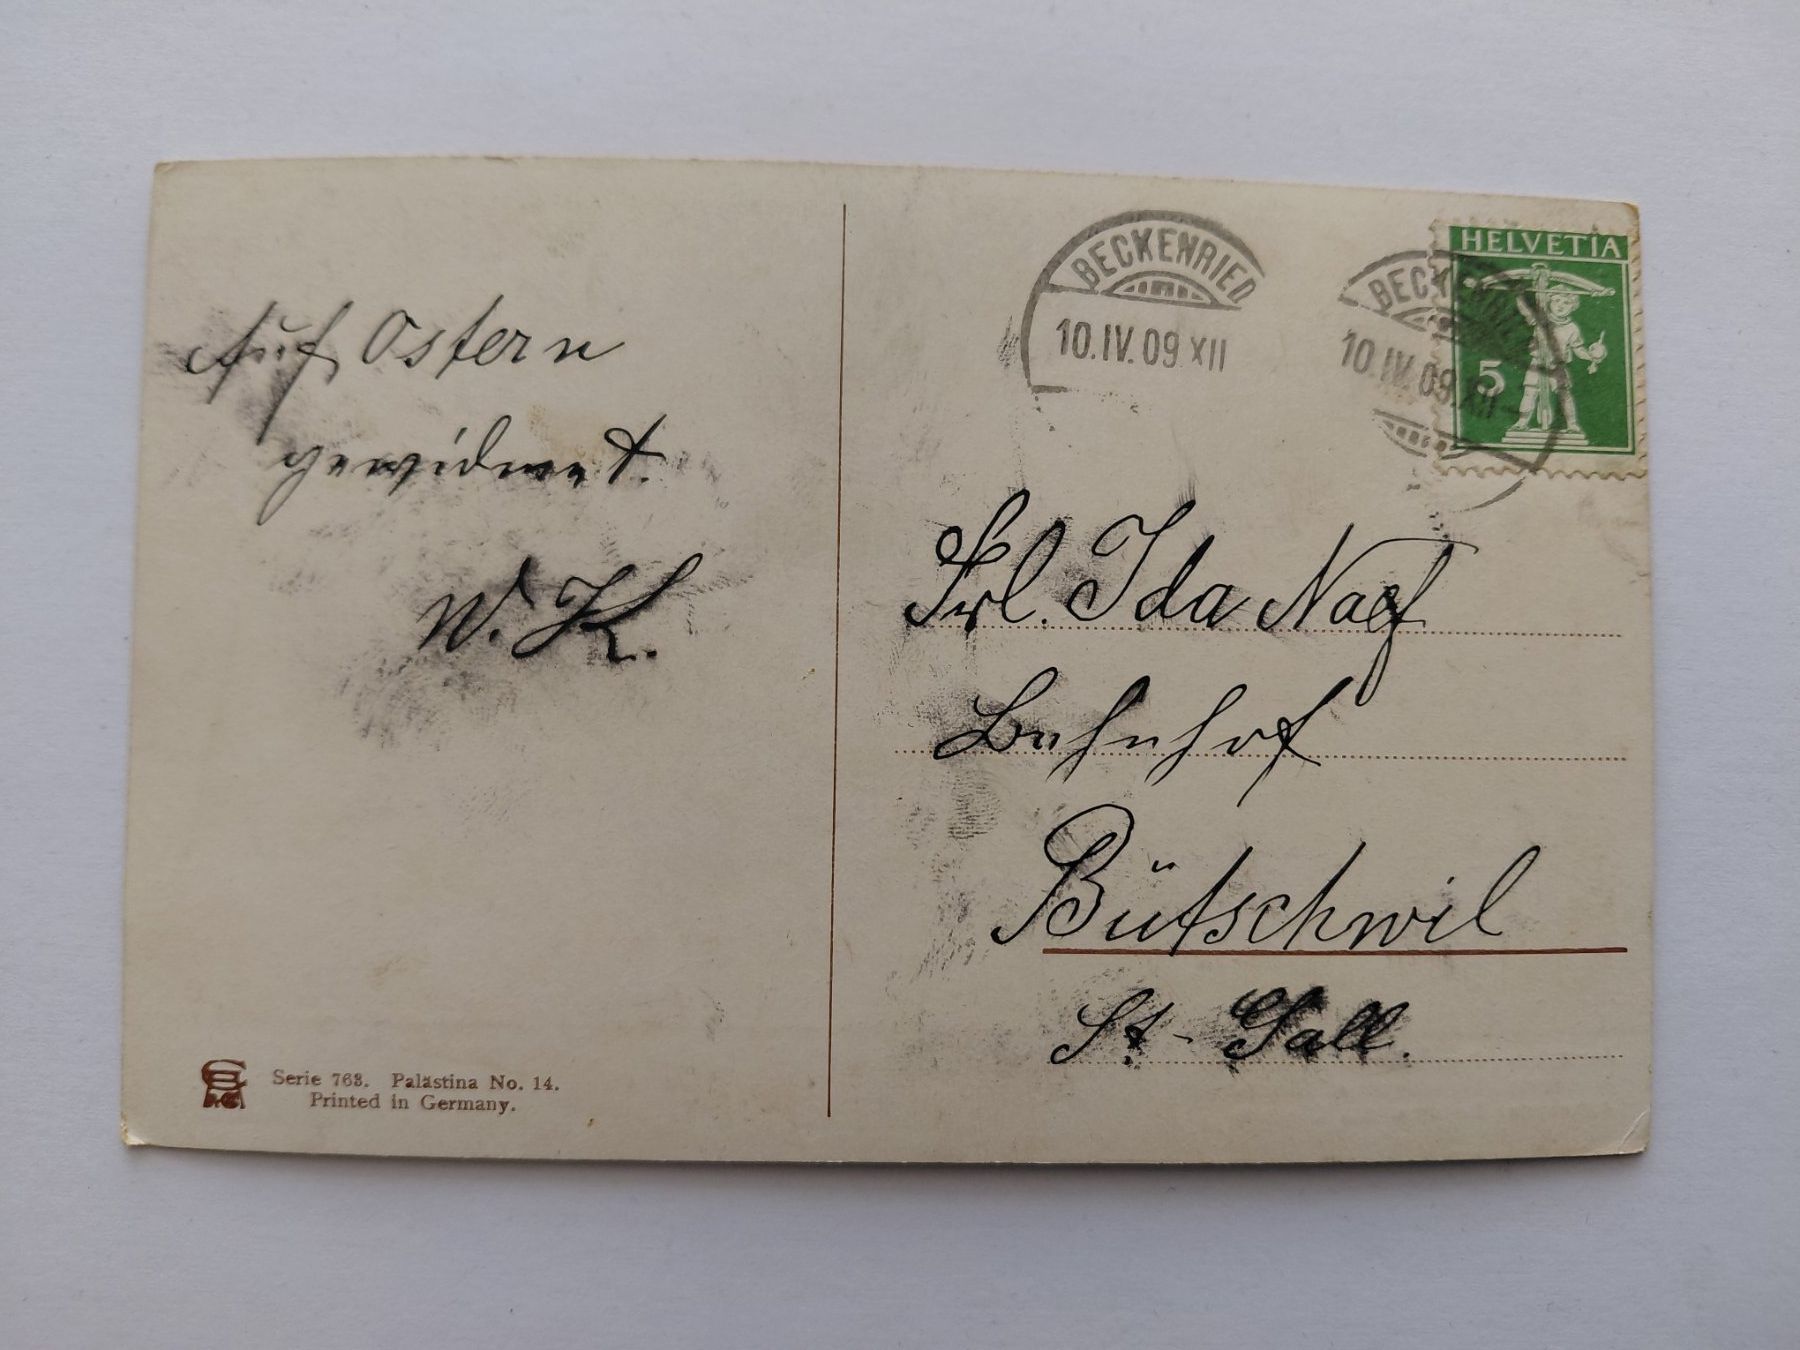 Auf Ostern
gewidmet.
W. K.
Serie 763. Palästina No. 14.
Printed in Germany.
BECKENRIED
10.IV.09 XII
BECKENRIED
10.IV.09.XII
HELVETIA
5
Frl. Ida Naef
Bahnhof
Bütschwil
St. Gall.